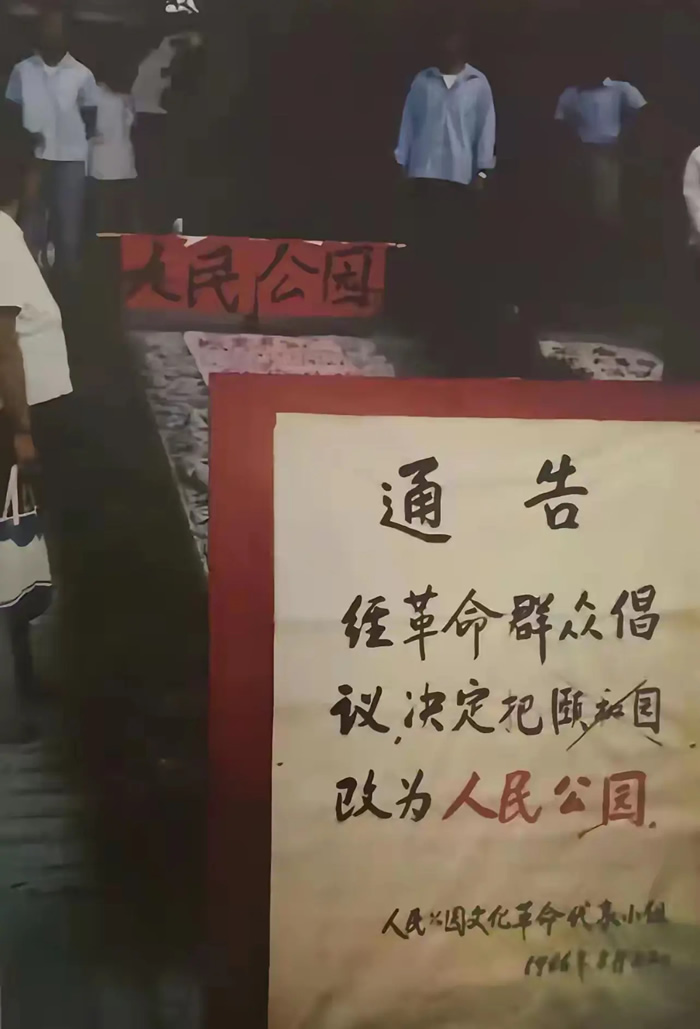 人民公园
通告
经革命群众倡
议,决定把颐和园
改为人民公园.
人民公园文化革命代表小组
1966年8月22日